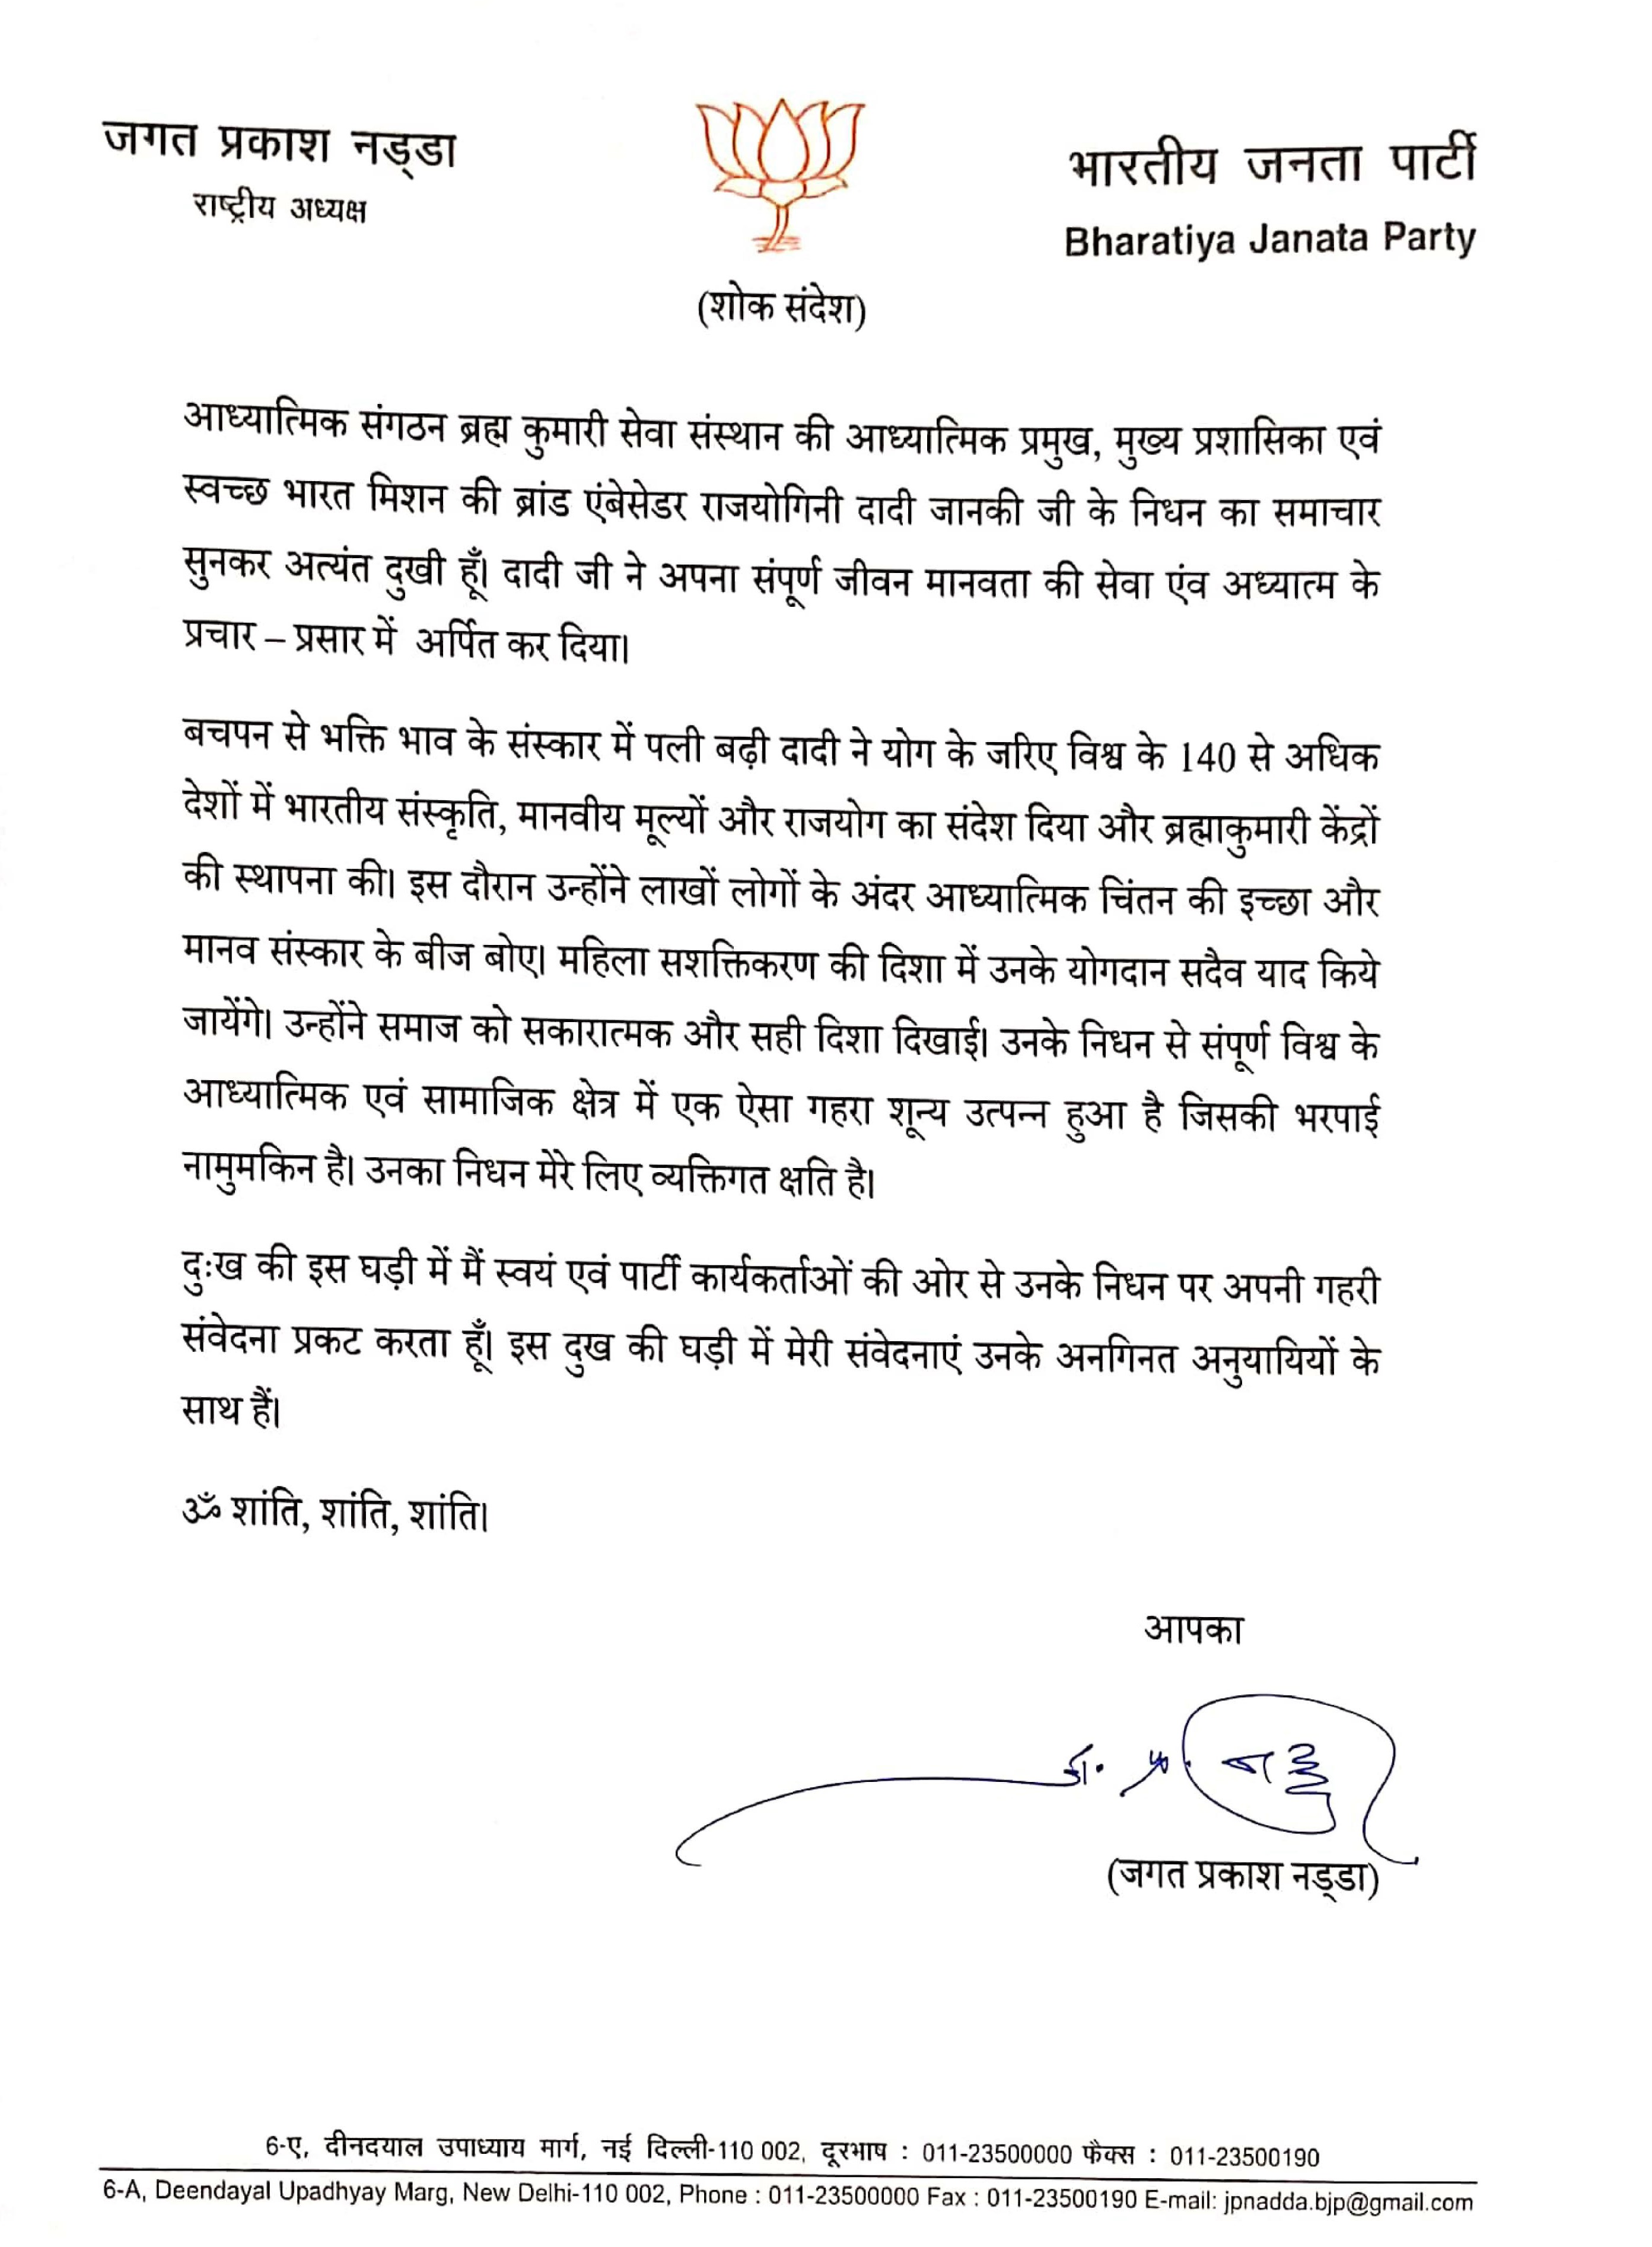 जगत प्रकाश नड्डा
राष्ट्रीय अध्यक्ष
भारतीय जनता पार्टी
Bharatiya Janata Party
(शोक संदेश)
आध्यात्मिक संगठन ब्रह्म कुमारी सेवा संस्थान की आध्यात्मिक प्रमुख, मुख्य प्रशासिका एवं
स्वच्छ भारत मिशन की ब्रांड एंबेसेडर राजयोगिनी दादी जानकी जी के निधन का समाचार
सुनकर अत्यंत दुखी हूँ। दादी जी ने अपना संपूर्ण जीवन मानवता की सेवा एंव अध्यात्म के
प्रचार – प्रसार में अर्पित कर दिया।
बचपन से भक्ति भाव के संस्कार में पली बढ़ी दादी ने योग के जरिए विश्व के 140 से अधिक
देशों में भारतीय संस्कृति, मानवीय मूल्यों और राजयोग का संदेश दिया और ब्रह्माकुमारी केंद्रों
की स्थापना की। इस दौरान उन्होंने लाखों लोगों के अंदर आध्यात्मिक चिंतन की इच्छा और
मानव संस्कार के बीज बोए। महिला सशक्तिकरण की दिशा में उनके योगदान सदैव याद किये
जायेंगे। उन्होंने समाज को सकारात्मक और सही दिशा दिखाई। उनके निधन से संपूर्ण विश्व के
आध्यात्मिक एवं सामाजिक क्षेत्र में एक ऐसा गहरा शून्य उत्पन्न हुआ है जिसकी भरपाई
नामुमकिन है। उनका निधन मेरे लिए व्यक्तिगत क्षति है।
दुःख की इस घड़ी में मैं स्वयं एवं पार्टी कार्यकर्ताओं की ओर से उनके निधन पर अपनी गहरी
संवेदना प्रकट करता हूँ। इस दुख की घड़ी में मेरी संवेदनाएं उनके अनगिनत अनुयायियों के
साथ हैं।
ॐ शांति, शांति, शांति।
आपका
(जगत प्रकाश नड्डा)
6-ए, दीनदयाल उपाध्याय मार्ग, नई दिल्ली-110 002, दूरभाष : 011-23500000 फैक्स : 011-23500190
6-A, Deendayal Upadhyay Marg, New Delhi-110 002, Phone : 011-23500000 Fax : 011-23500190 E-mail: jpnadda.bjp@gmail.com